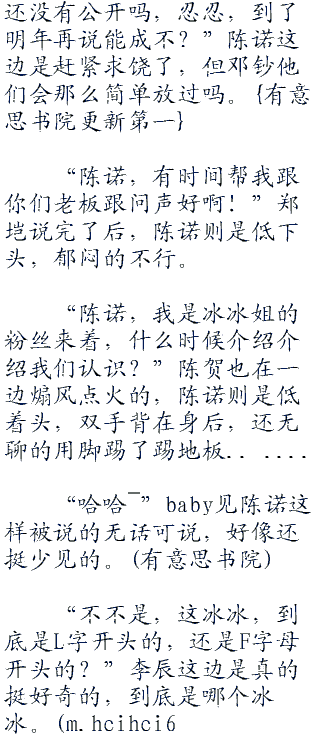 还没有公开吗，忍忍，到了
明年再说能成不？”陈诺这
边是赶紧求饶了，但邓钞他
们会那么简单放过吗。{有意
思书院更新第一}
“陈诺，有时间帮我跟
你们老板跟问声好啊！”郑
垲说完了后，陈诺则是低下
头，郁闷的不行。
“陈诺，我是冰冰姐的
粉丝来着，什么时候介绍介
绍我们认识？”陈贺也在一
边煽风点火的，陈诺则是低
着头，双手背在身后，还无
聊的用脚踢了踢地板.. ....
“哈哈¯”baby见陈诺这
样被说的无话可说，好像还
挺少见的。(有意思书院)
“不不是，这冰冰，到
底是L字开头的，还是F字母
开头的？”李辰这边是真的
挺好奇的，到底是哪个冰
冰。(m.hcihci6